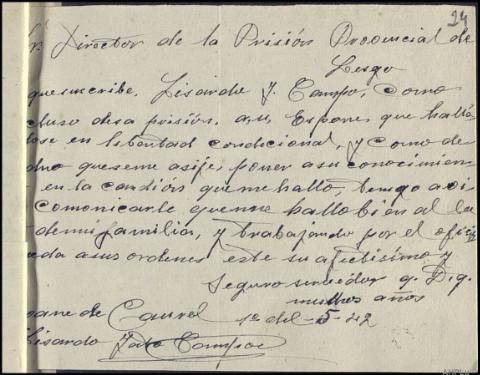 24
Sr. Director de la Prisión Provincial de
Lugo
que suscribe, Lisardo J. Campo, como
cluso desa prisión, a, u, Espone, que hallo
dose en libertad condicional, y como de
que seme asije, poner a su conocimien
en la candión que me hallo, tengo a vi
comonicarle que me hallo bien al la
de mi familia, y trabajando por el ofici
eda a sus ordenes este su afctisimo y
Seguro servidor q. D. g.
muchos años
oane de Caurel 1º del-5-42
Lisardo Campo